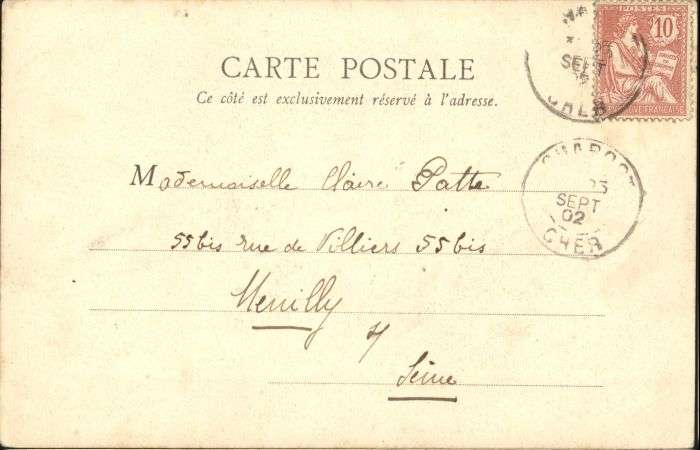 POSTES
10
SEPT
CHER
CARTE POSTALE
Ce côté est exclusivement réservé à l'adresse.
CHAROST
23
SEPT
02
CHER
Mademoiselle Claire Patte
55bis rue de Villiers 55bis
Neuilly
s/
Seine